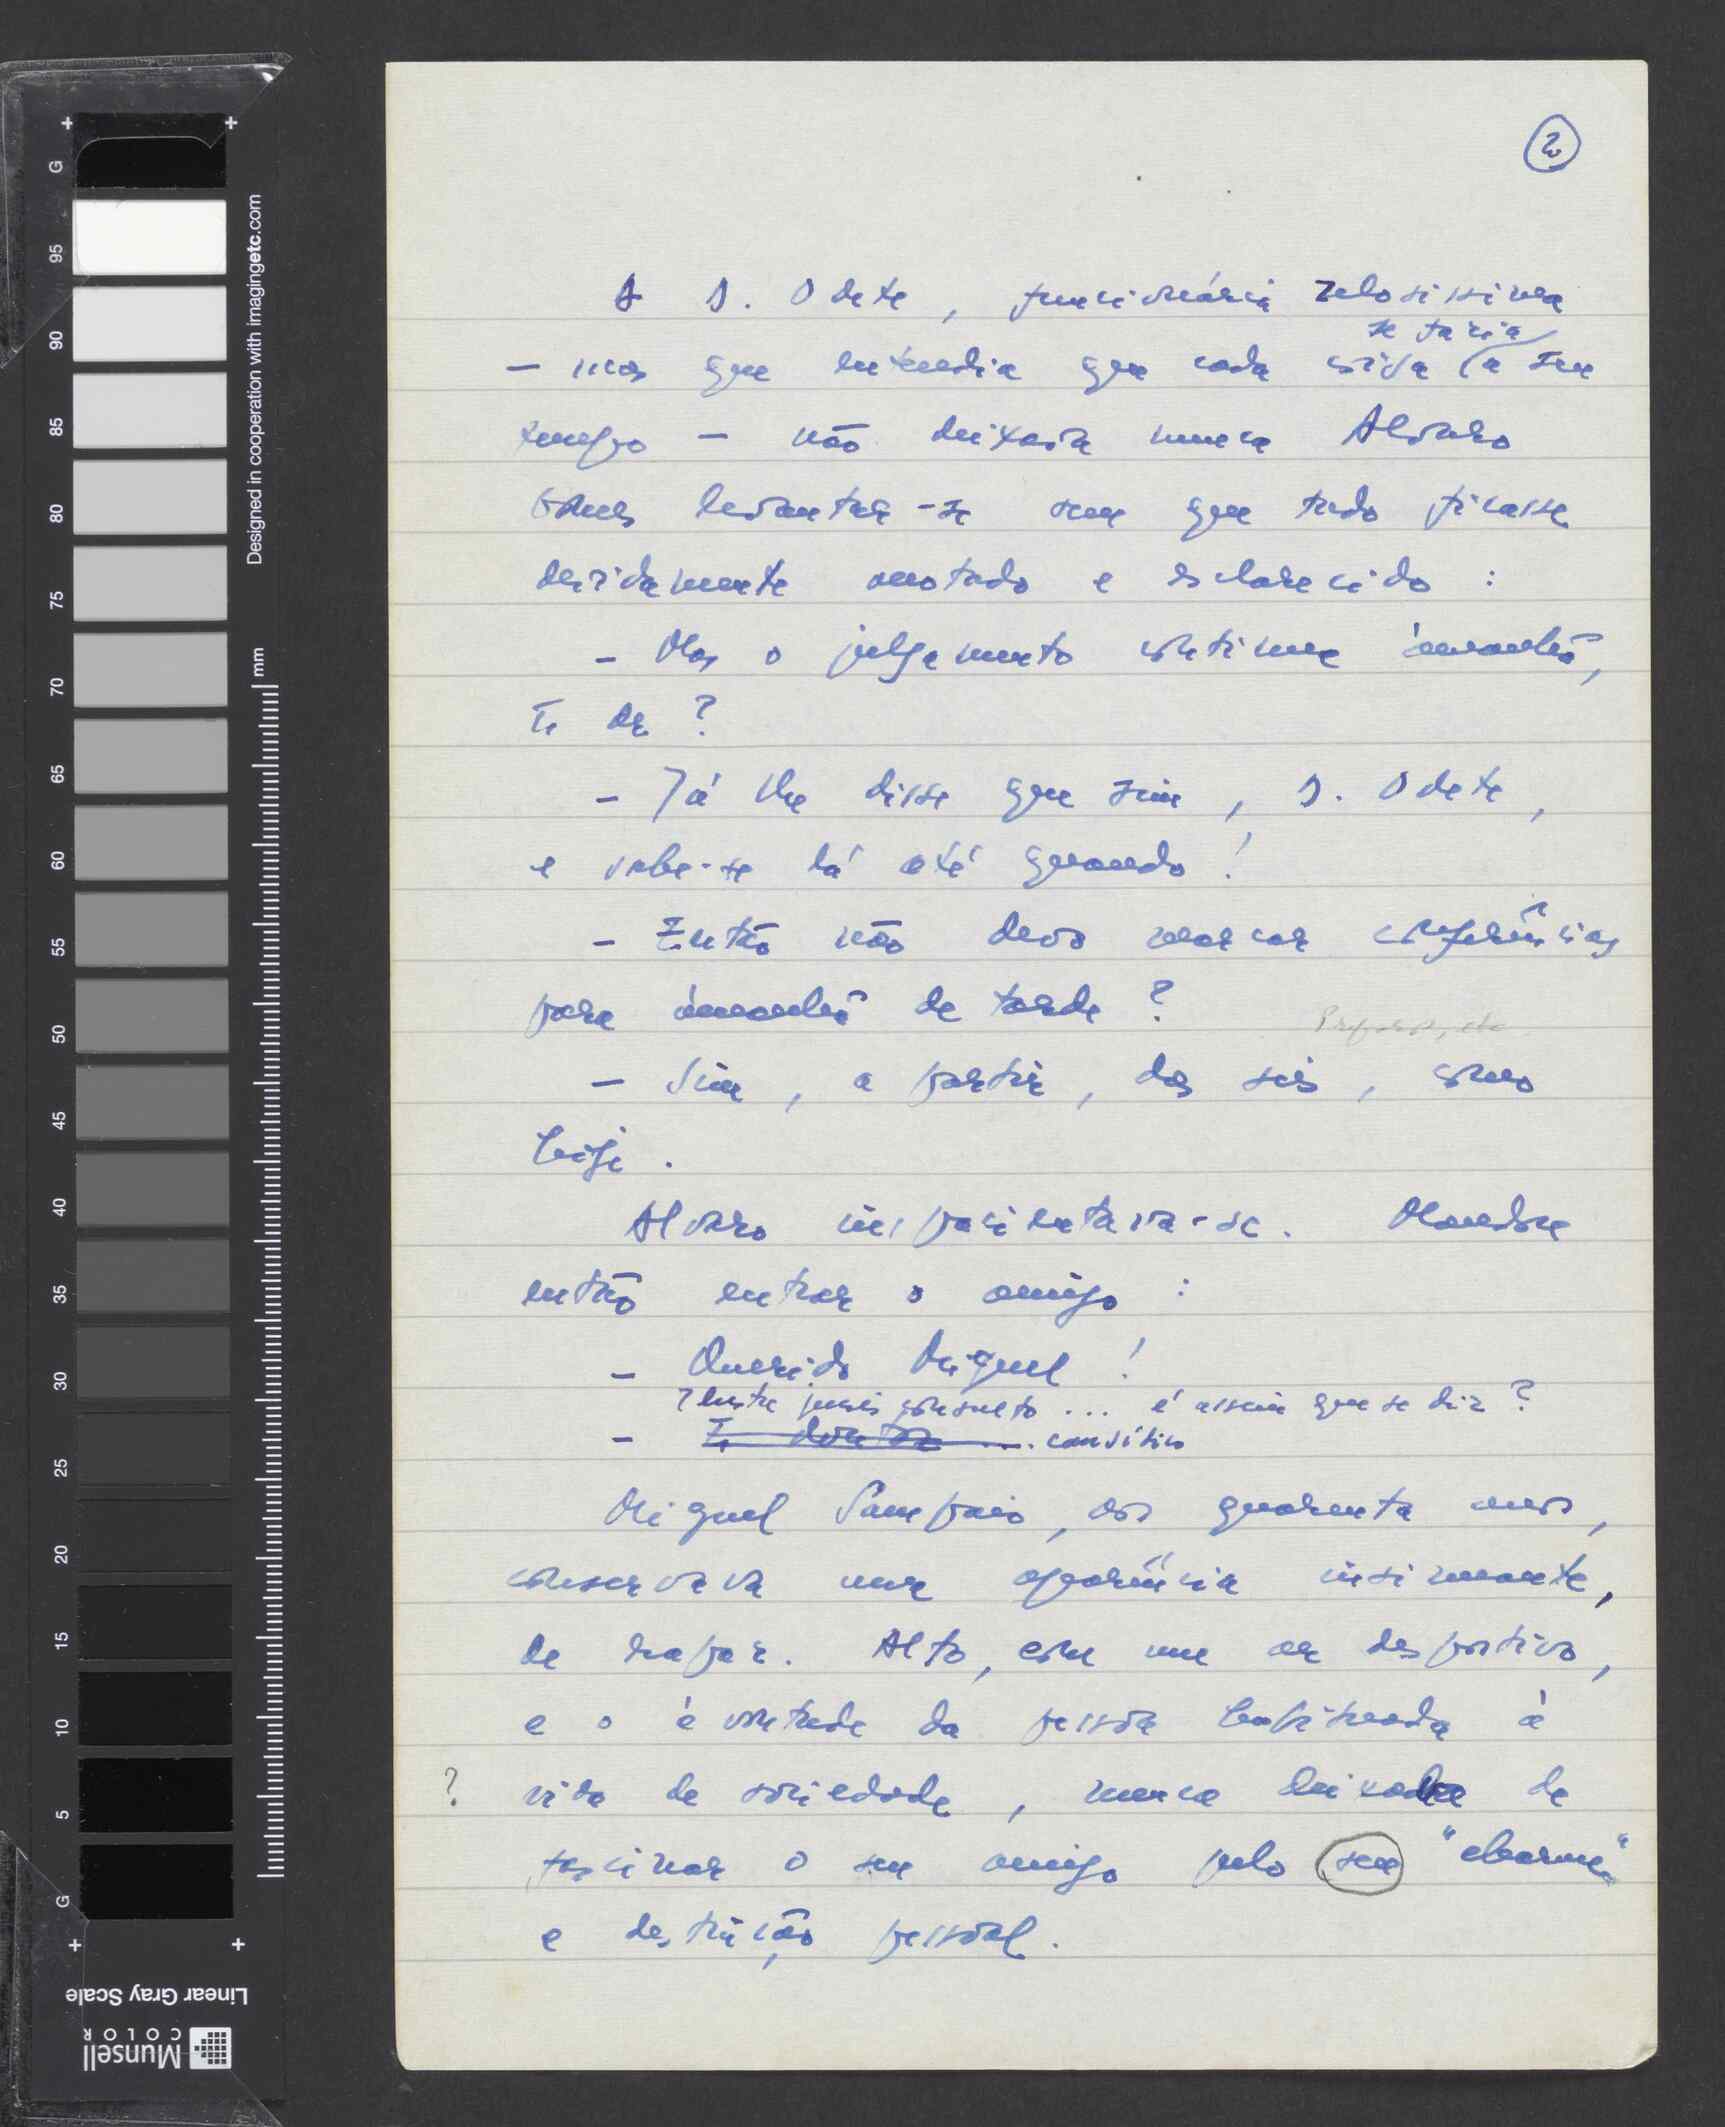 2
A D. Odete, funcionária zelosissima
se faria
– mas que entendia que cada coisa a seu
tempo – não deixava nunca Alvaro
Gomes levantar-se sem que tudo ficasse
devidamente anotado e esclarecido :
– Mas o julgamento continua àmanhã,
Sr Dr ?
– Já lhe disse que sim, D. Odete,
e sabe-se lá até quando !
– Então não devo marcar conferências
para àmanhã de tarde ?
– Sim, a partir, das seis, como
hoje.
Alvaro impacientava-se. Mandou
então entrar o amigo :
– Querido Miguel !
Ilustre jurisconsulto ... é assim que se diz ?
–
Miguel Sampaio, aos quarenta anos,
conservava uma aparência insinuante,
de rapaz. Alto, com um ar desportivo,
e o à vontade da pessoa habituada à
? vida de sociedade, nunca deixara de
fascinar o seu amigo pelo seu "charme"
e destinção pessoal.
G 95 90 85 80 75 70 65 60 55 50 45 40 35 30 25 20 15 10 5 G
mm
Designed in cooperation with imagingetc.com
Linear Gray Scale
Munsell
COLOR